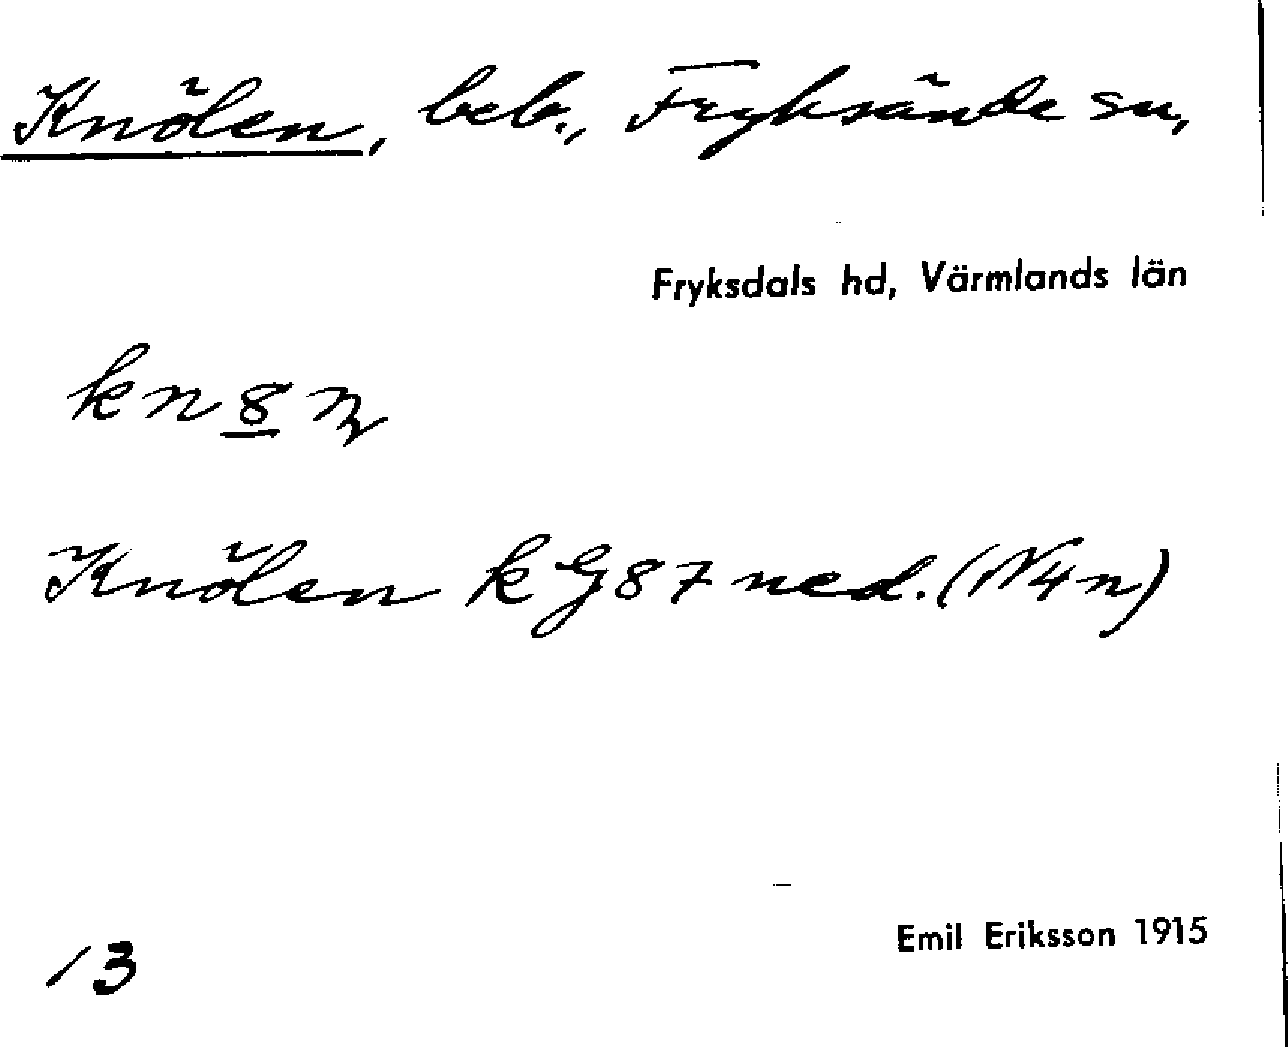 Knölen, beb., Fryksände sn,
Fryksdals hd, Värmlands län
kn8n
Knölen k G87 ned. (N4n)
13
Emil Eriksson 1915